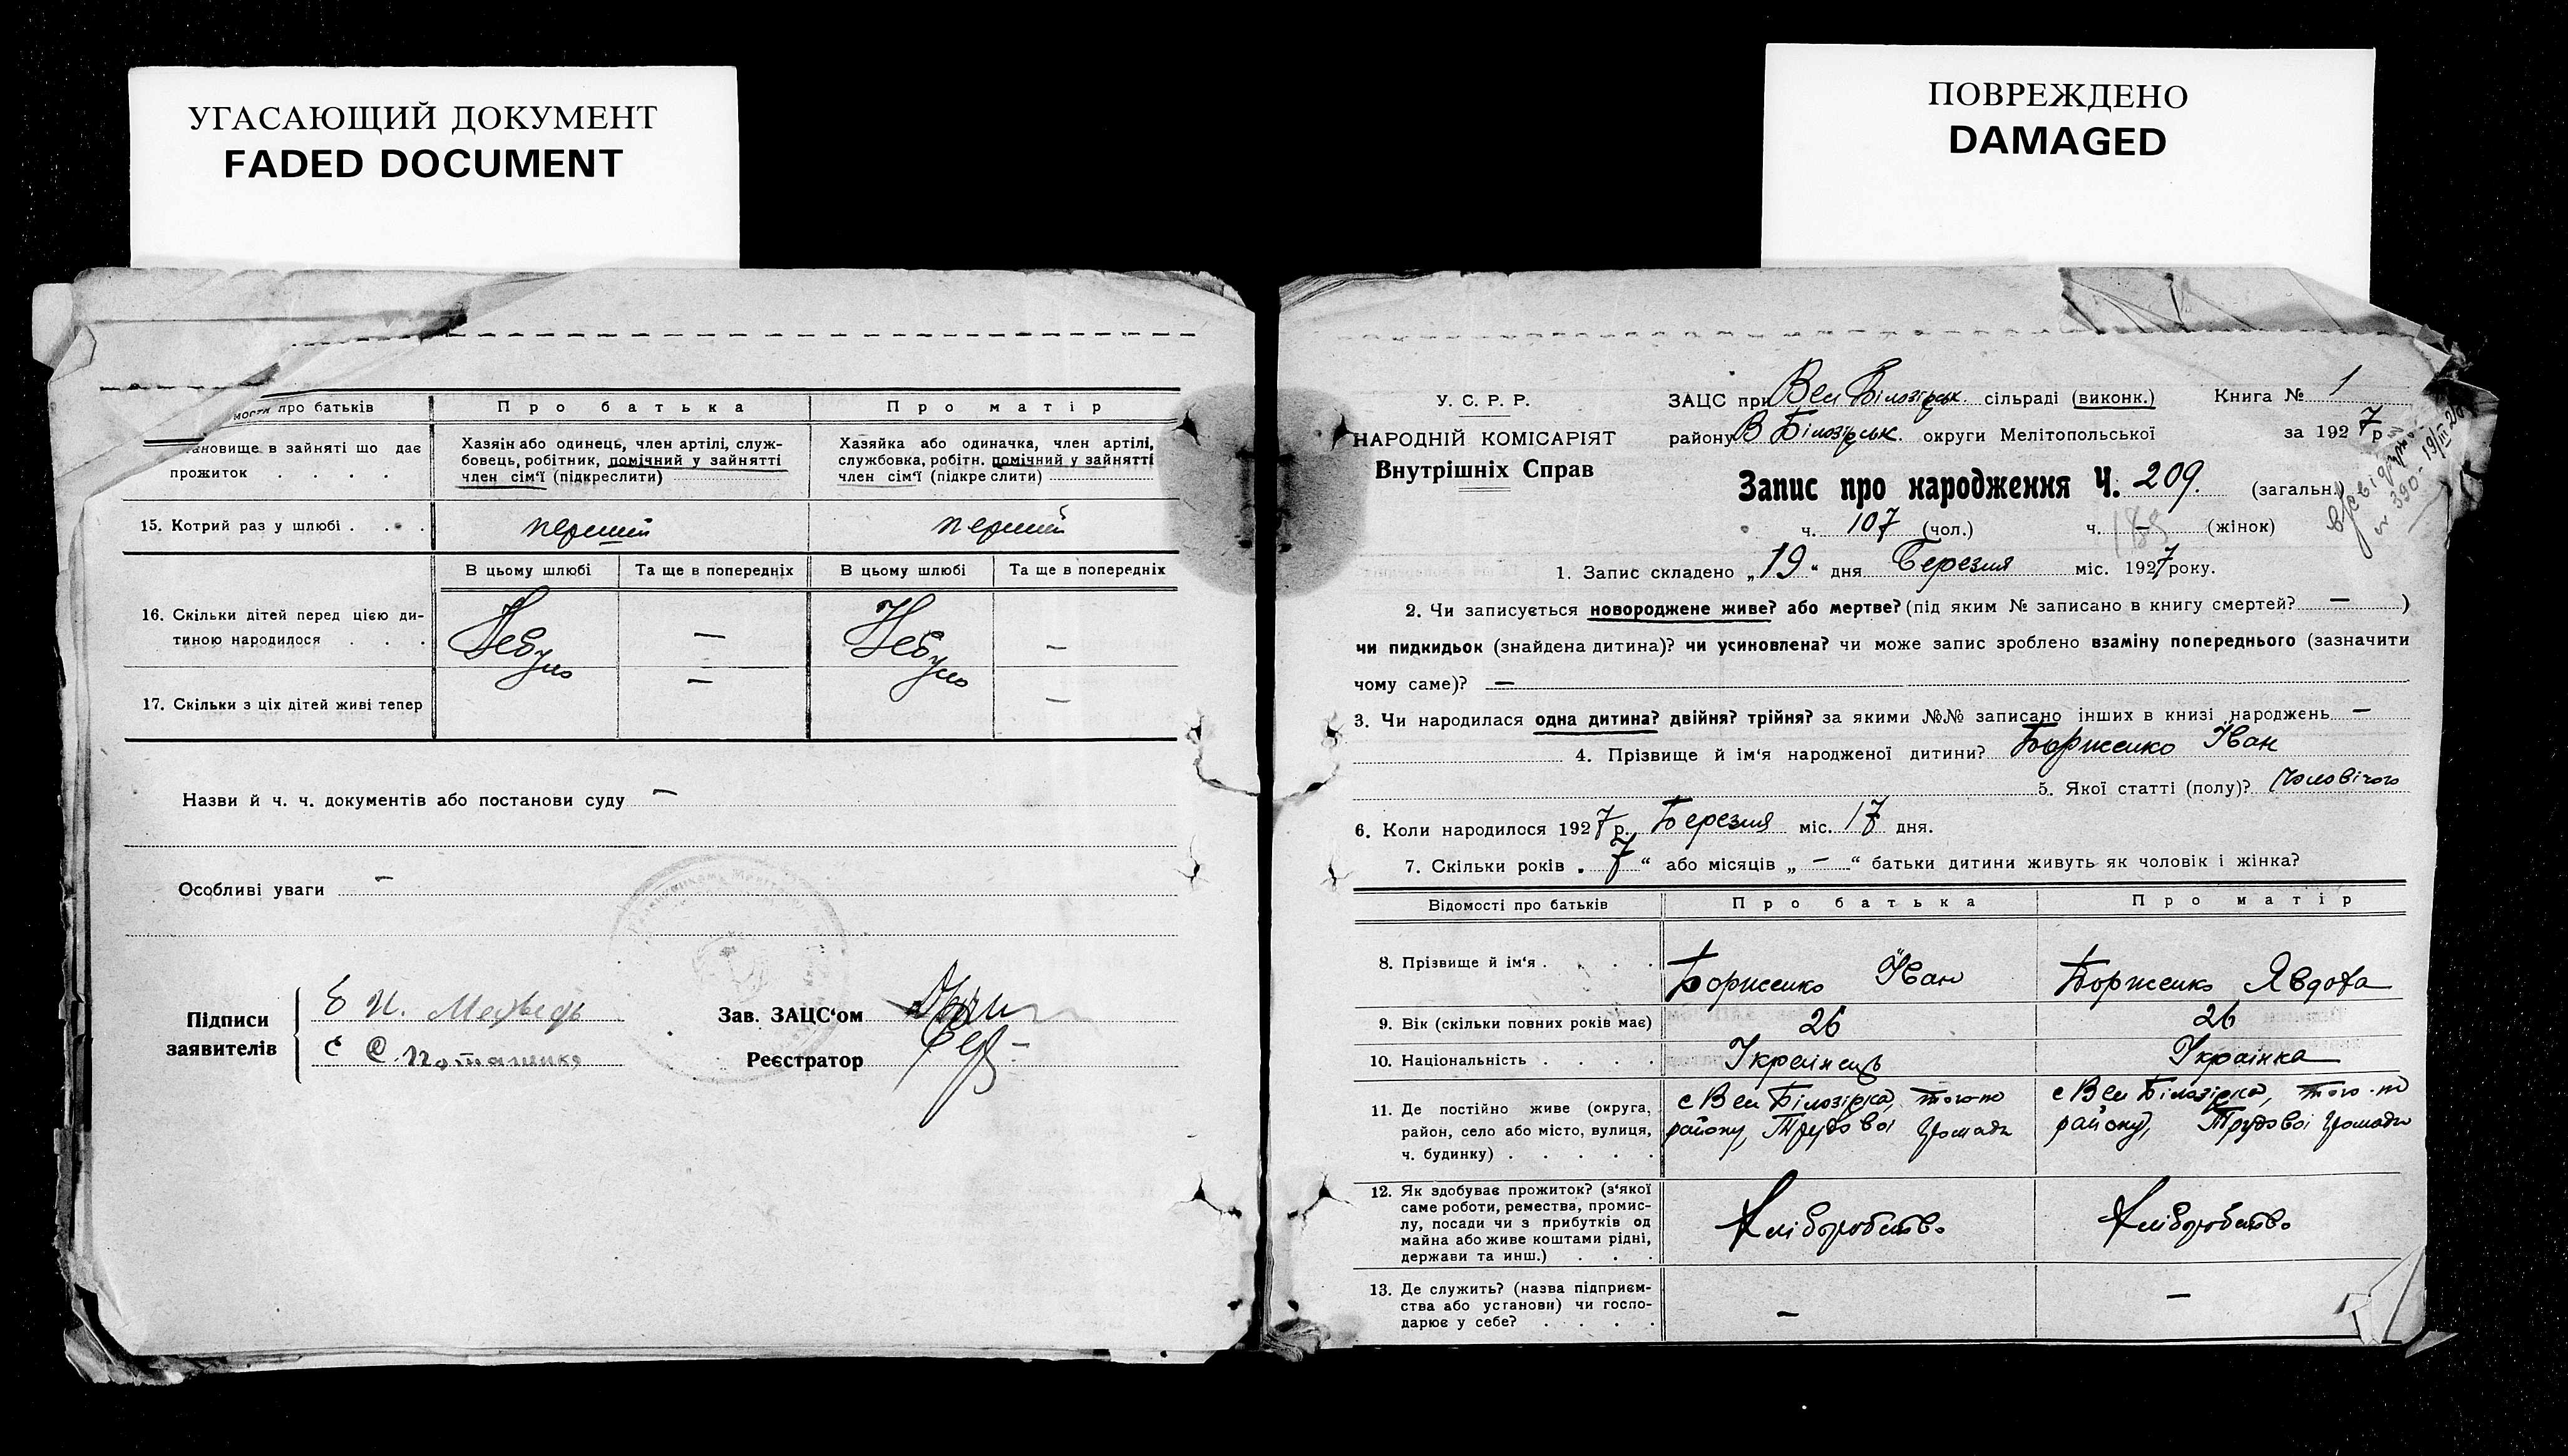 УГАСАЮЩИЙ ДОКУМЕНТ
FADED DOCUMENT
ПОВРЕЖДЕНО
DAMAGED
мости про батьків
Про батька
Про матір
тановище в зайняті що дає
прожиток . . . .
Хазяїн або одинець, член артілі, служ-
бовець, робітник, помічний у зайнятті
член сім'ї (підкреслити)
Хазяйка або одиначка, член артілі,
службовка, робітн. помічний у зайнятті
член сім'ї (підкреслити)
15. Котрий раз у шлюбі . . .
перший
перший
В цьому шлюбі
Та ще в попередніх
В цьому шлюбі
Та ще в попередніх
16. Скільки дітей перед цією ди-
тиною народилося . . .
Небуло
—
Небуло
—
17. Скільки з ціх дітей живі тепер
—
—
Назви й ч. ч. документів або постанови суду —
Особливі уваги —
Підписи
заявителів
Е И. Медведь
С.Поташенко
Зав. ЗАЦС'ом
Реєстратор
У. С. Р. Р.
НАРОДНІЙ КОМІСАРІЯТ
Внутрішніх Справ
ЗАЦС при Вел Білозірськ. сільраді (виконк.)
Книга № 1
району В Білозірськ. округи Мелітопольської
за 1927 р
Запис про народження Ч. 209. (загальн.)
№ 390 - 19/III
ч. 107 (чол.) ч. — (жінок)
1. Запис складено „19“ дня Березня міс. 1927 року.
2. Чи записується новороджене живе? або мертве? (під яким № записано в книгу смертей? — )
чи пидкидьок (знайдена дитина)? чи усиновлена? чи може запис зроблено взаміну попереднього (зазначити
чому саме)? —
3. Чи народилася одна дитина? двійня? трійня? за якими №№ записано інших в книзі народжень —
4. Прізвище й ім'я народженої дитини? Борисенко Іван
5. Якої статті (полу)? Чоловічого
6. Коли народилося 1927 р. Березня міс. 17 дня.
7. Скільки років „7“ або місяців „ — “ батьки дитини живуть як чоловік і жінка?
Відомості про батьків
Про батька
Про матір
8. Прізвище й ім'я . . . .
Борисенко Іван
Борисенко Явдоха
9. Вік (скільки повних років має)
26
26
10. Національність . . . .
Українець
Українка
11. Де постійно живе (округа,
район, село або місто, вулиця,
ч. будинку) . . . . .
с Вел Білозірка, того-ж
району, Трудової громади
с Вел Білозірка, того-ж
району, Трудової громади
12. Як здобуває прожиток? (з'якої
саме роботи, ремества, промис-
лу, посади чи з прибутків од
майна або живе коштами рідні,
держави та инш.) . . .
Хліборобство
Хліборобство
13. Де служить? (назва підприєм-
ства або установи) чи госпо-
дарює у себе? . . . .
—
—